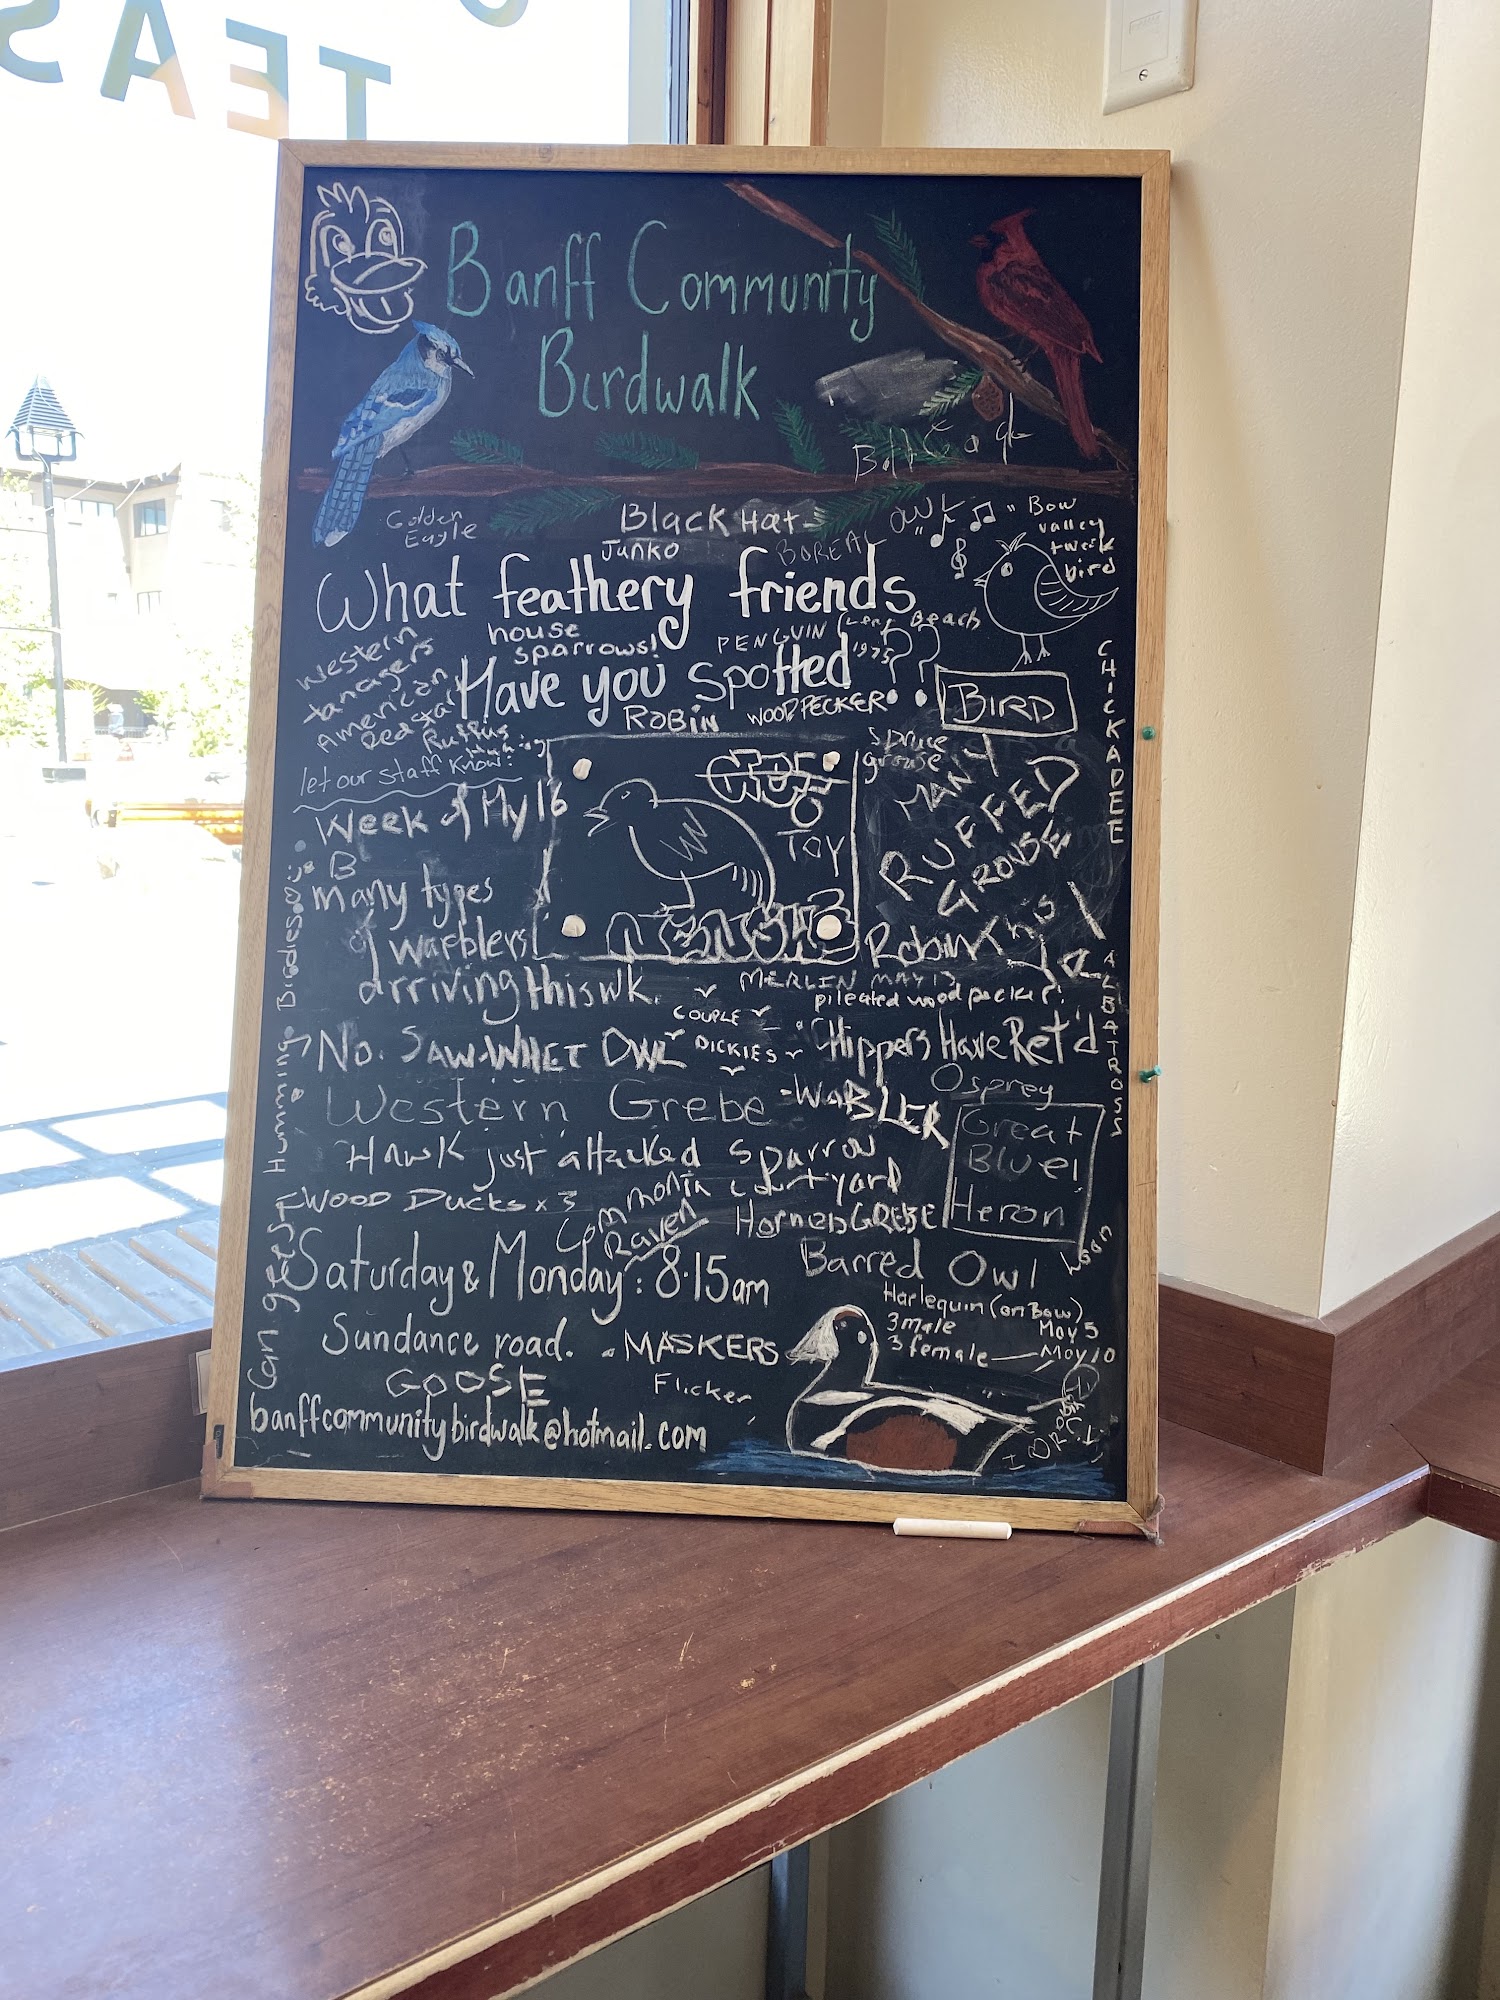 TEAS
Banff Community
Birdwalk
Golden
Eagle
Black Hat
Junko
BOREAL OWL
" Bow
valley
twerk
bird
What feathery friends
house
sparrows!
PENGUIN (Long Beach
1975
Have you spotted??
Western
tanagers
American
Redstart
Ruffus
ROBIN
WOODPECKER
BIRD
CHICKADEE
let our staff know:
Spruce
grouse
MANY
RUFFED
GROUSE
Week of My 16
TOY
B
many types
of warblers
arriving this wk.
Robin
MERLIN MAY 13
pileated woodpecker!
ALBATROSS
COUPLE
DICKIES
No. SAW-WHET OWL
Chippers Have Ret'd
Osprey
Western Grebe
-WaBLER
Great
Blue!
Heron
Hawk just attacked sparrow
in courtyard
WOOD DUCKS x 3
Common
Raven
HORNED GREBE
Loon
Saturday & Monday: 8:15am
Barred Owl
Harlequin (on Bow)
3 male May 5
3 female — May 10
Sundance road.
MASKERS
GOOSE
Flicker
banffcommunitybirdwalk@hotmail.com
Humming Birdies
Can geese